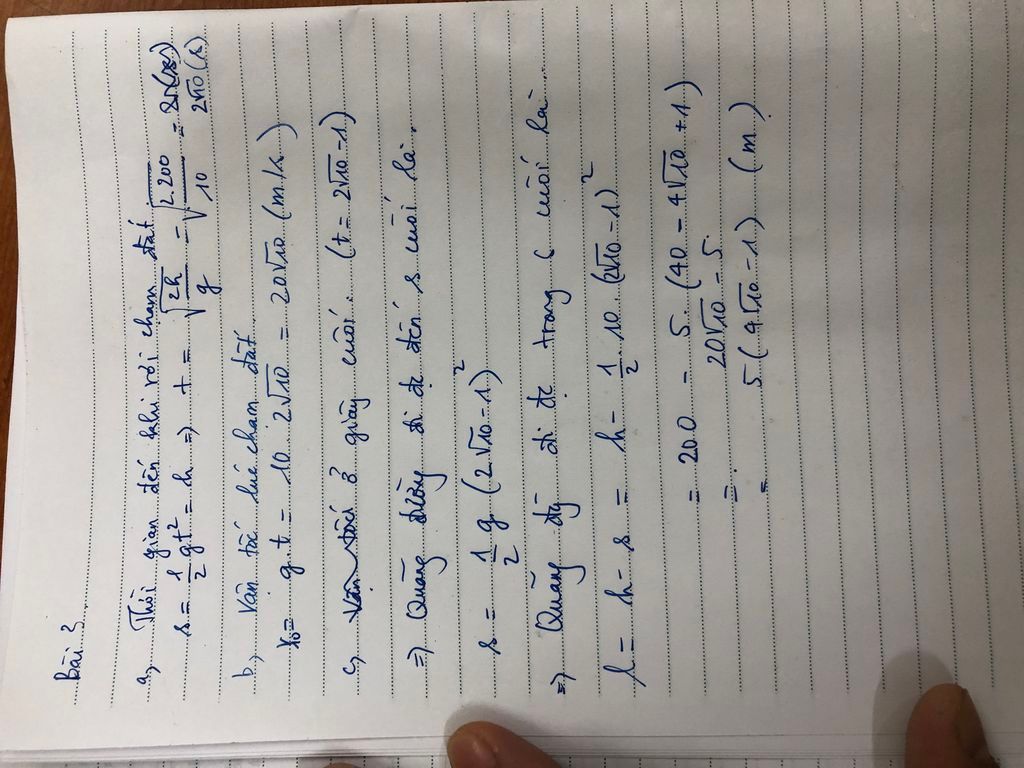 Bài 3.
a, Thời gian đến khi rơi chạm đất
s = 1/2 gt² = h => t = √(2h/g) = √(2.200/10) = 2√10 (s)
b, Vận tốc lúc chạm đất
= g.t = 10.2√10 = 20√10 (m/s)
c, giây cuối. (t = 2√10 - 1)
=> Quãng đường đi đc đến s cuối là.
s = 1/2 g (2√10 - 1)²
=> Quãng đg đi đc trong s cuối là.
l = h - s = h - 1/2 10. (2√10 - 1)²
= 200 - 5. (40 - 4√10 + 1)
= 20√10 - 5.
= 5(4√10 - 1) (m)